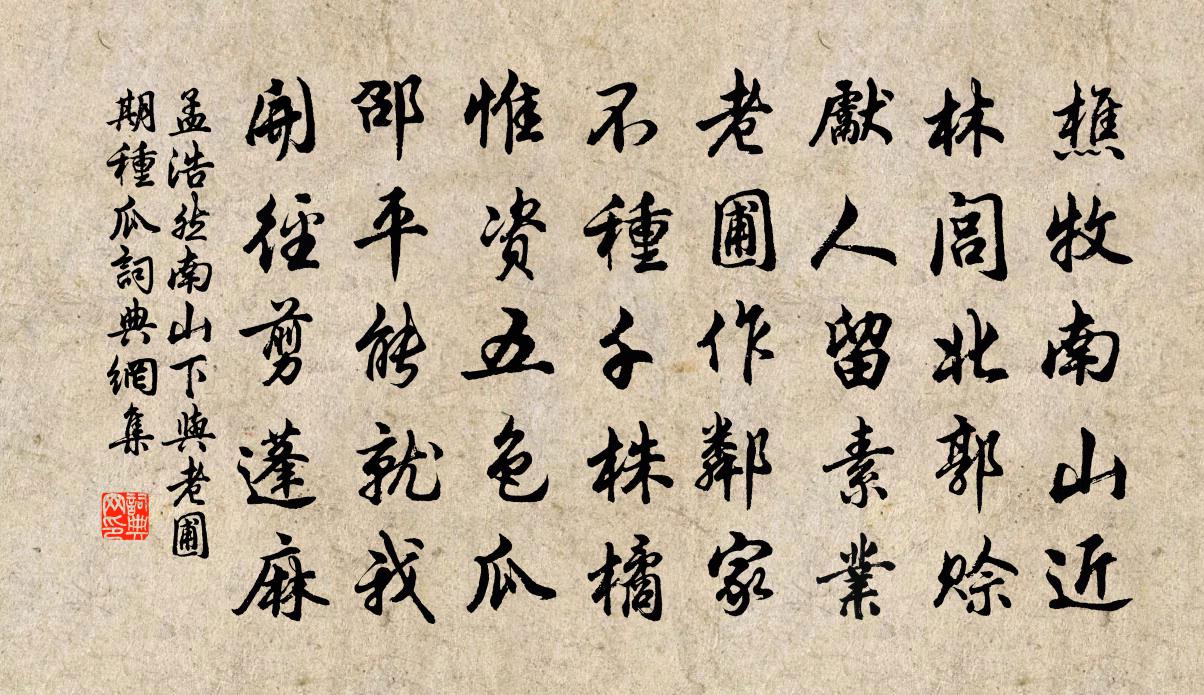 樵牧南山近
林閭北郭賒
獻人留素業
老圃作鄰家
不種千株橘
惟資五色瓜
邵平能就我
開徑剪蓬麻
孟浩然南山下與老圃
期種瓜詞典網集
詞典
网印